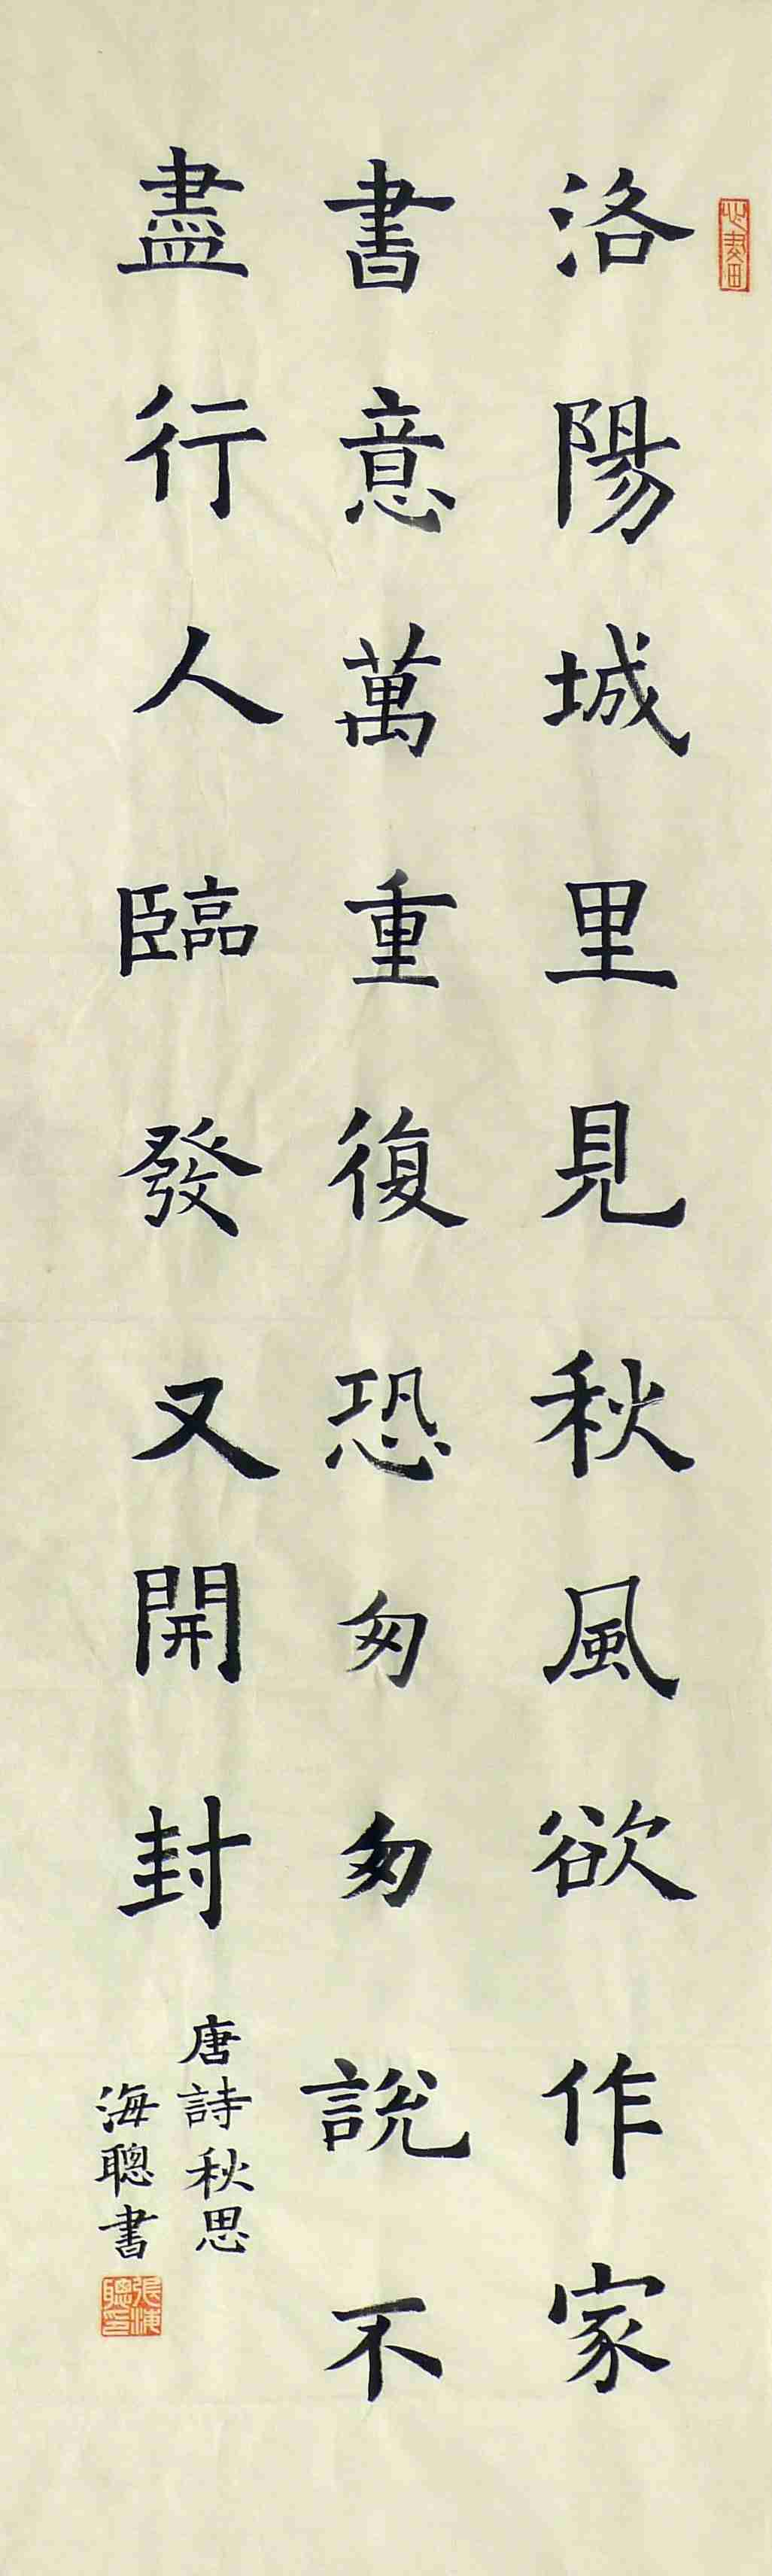 洛陽城里見秋風欲作家
書意萬重復恐匆匆說不
盡行人臨發又開封
唐詩秋思
海聰書
張海聰印